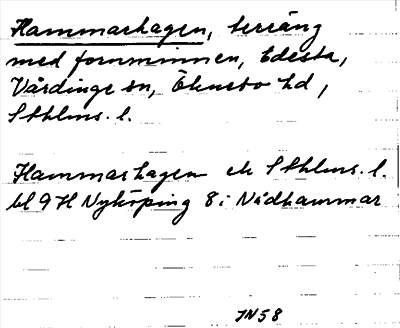 Hammarhagen, terräng
med fornminnen, Edesta,
Vårdinge sn, Öknebo hd,
Sthlms. l.
Hammarhagen ek Sthlms. l.
bl 9 H Nyköping 8 i Nådhammar
IN 58